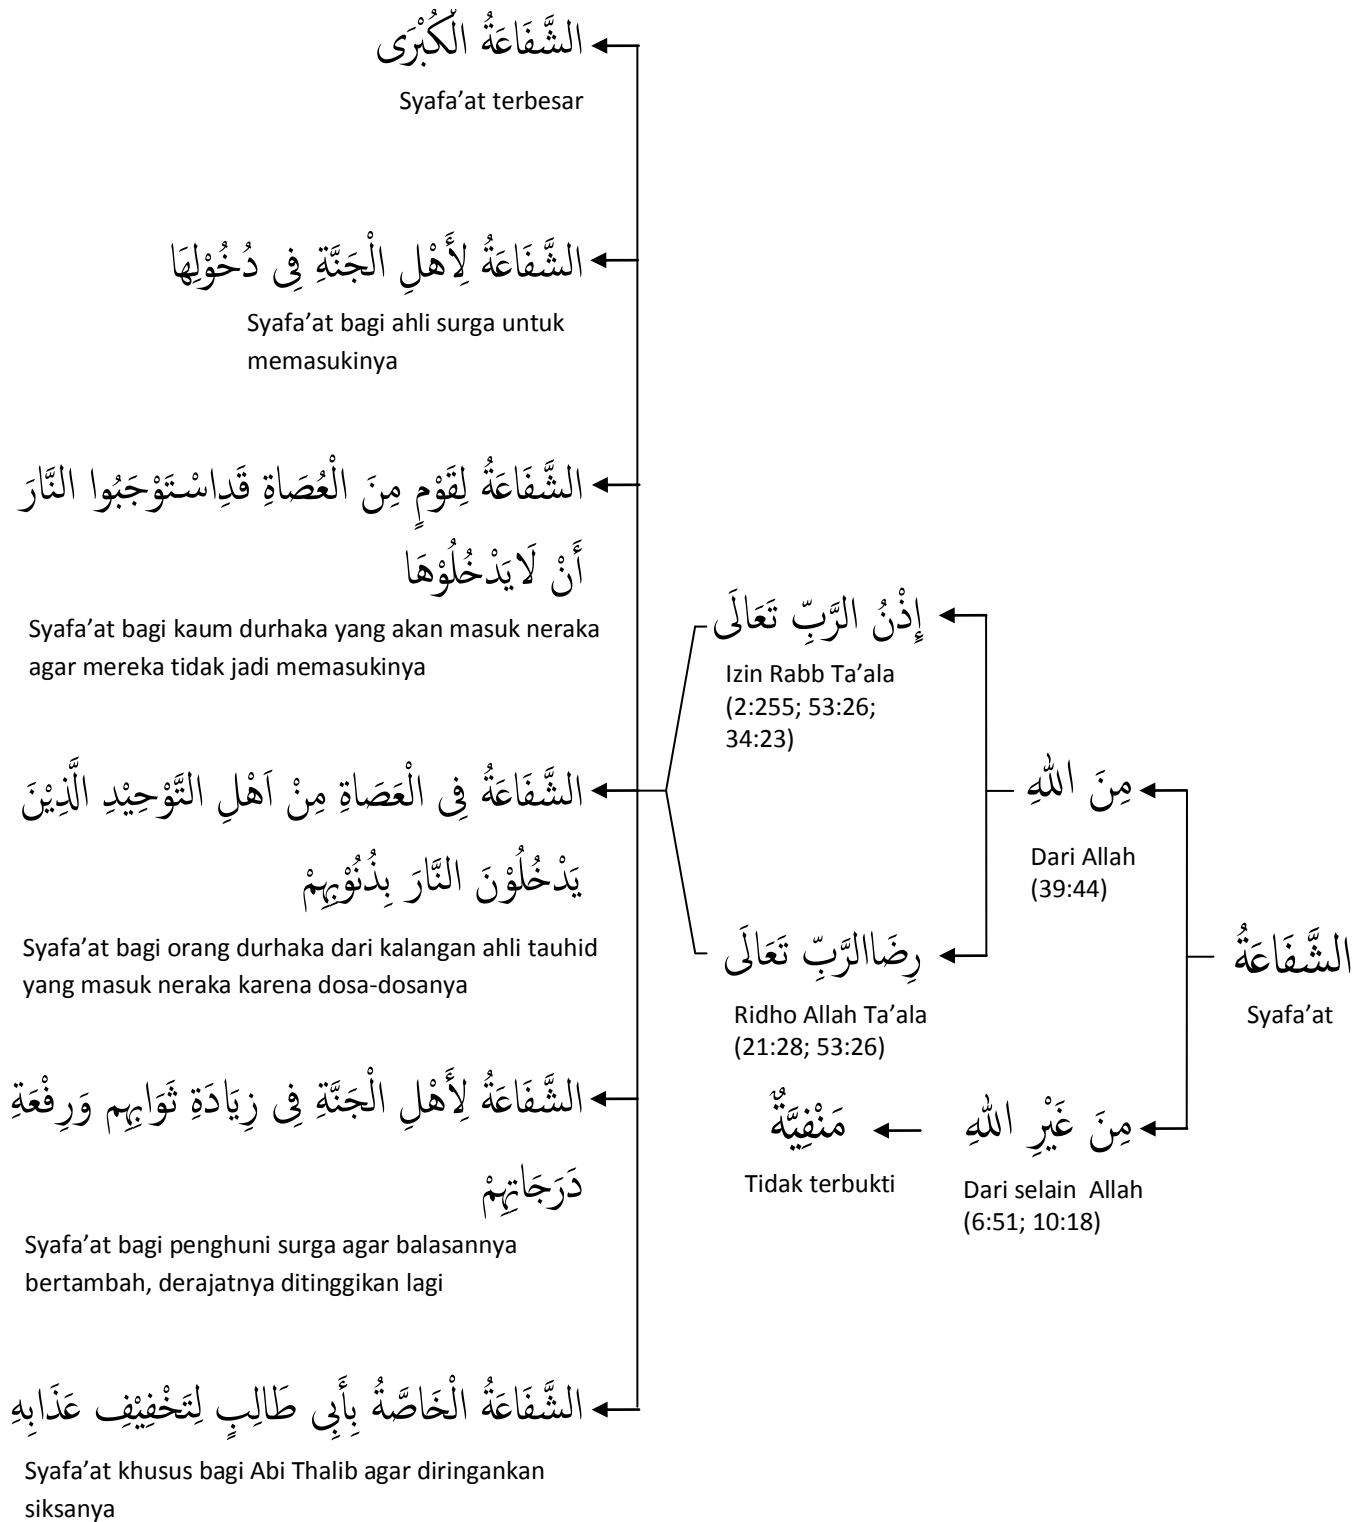 الشَّفَاعَةُ الْكُبْرَى
Syafa’at terbesar
الشَّفَاعَةُ لِأَهْلِ الْجَنَّةِ فِى دُخُوْلِهَا
Syafa’at bagi ahli surga untuk
memasukinya
الشَّفَاعَةُ لِقَوْمٍ مِنَ الْعُصَاةِ قَدِاسْتَوْجَبُوا النَّارَ
أَنْ لَايَدْخُلُوْهَا
Syafa’at bagi kaum durhaka yang akan masuk neraka
agar mereka tidak jadi memasukinya
الشَّفَاعَةُ فِى الْعَصَاةِ مِنْ اَهْلِ التَّوْحِيْدِ الَّذِيْنَ
يَدْخُلُوْنَ النَّارَ بِذُنُوْبِهِمْ
Syafa’at bagi orang durhaka dari kalangan ahli tauhid
yang masuk neraka karena dosa-dosanya
الشَّفَاعَةُ لِأَهْلِ الْجَنَّةِ فِى زِيَادَةِ ثَوَابِهِم وَرِفْعَةِ
دَرَجَاتِهِمْ
Syafa’at bagi penghuni surga agar balasannya
bertambah, derajatnya ditinggikan lagi
الشَّفَاعَةُ الْخَاصَّةُ بِأَبِى طَالِبٍ لِتَخْفِيْفِ عَذَابِهِ
Syafa’at khusus bagi Abi Thalib agar diringankan
siksanya
إِذْنُ الرَّبِّ تَعَالَى
Izin Rabb Ta’ala
(2:255; 53:26;
34:23)
رِضَاالرَّبِّ تَعَالَى
Ridho Allah Ta’ala
(21:28; 53:26)
مَنْفِيَّةٌ
Tidak terbukti
مِنَ اللهِ
Dari Allah
(39:44)
مِنَ غَيْرِ اللهِ
Dari selain  Allah
(6:51; 10:18)
الشَّفَاعَةُ
Syafa’at